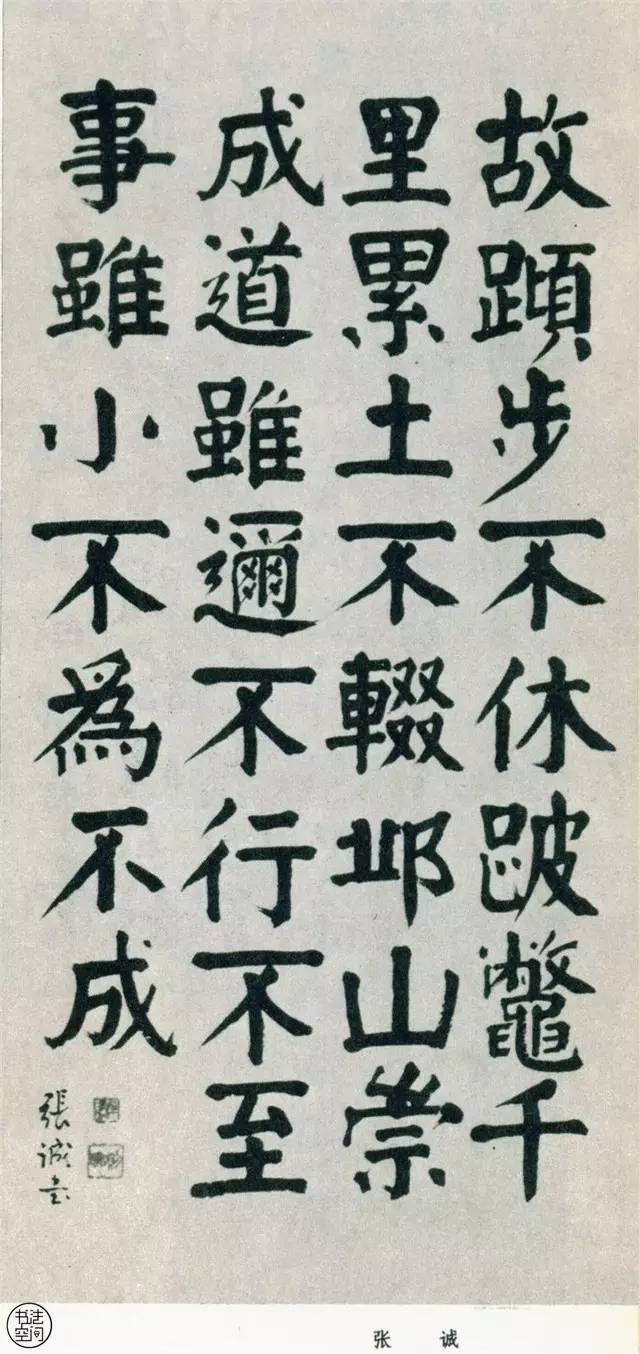 故蹞步不休跛鼈千
里累土不輟邱山崇
成道雖邇不行不至
事雖小不爲不成
張誠书
书法
空间
张 诚